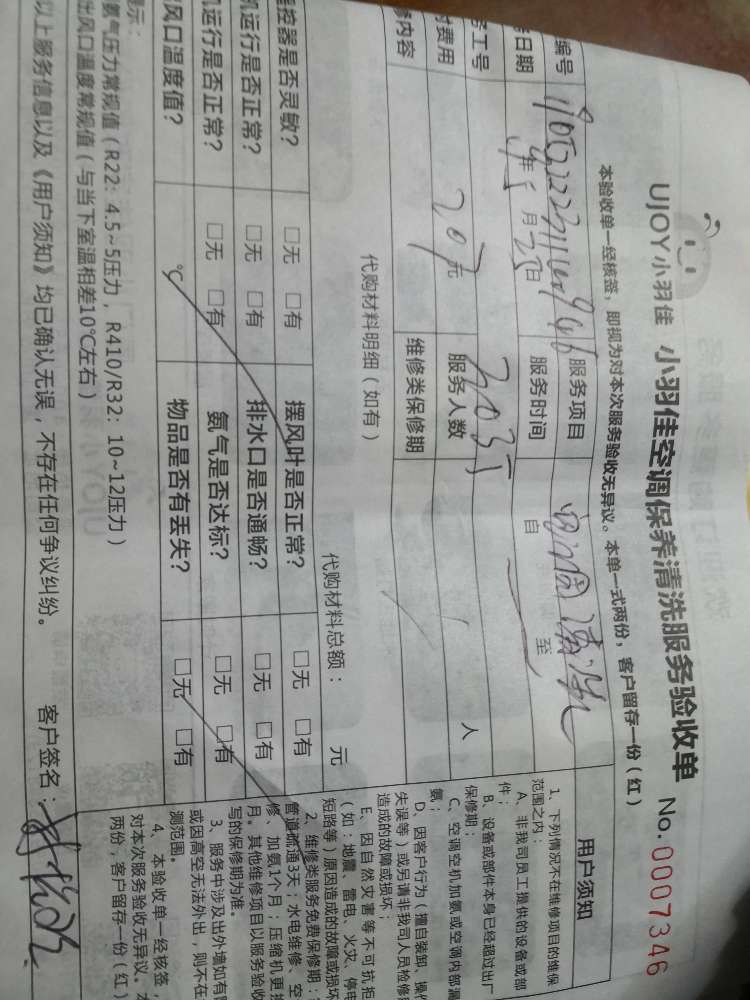 UJOY小羽佳 小羽佳空调保养清洗服务验收单 No.0007346
本验收单一经核签，即视为对本次服务验收无异议。本单一式两份，客户留存一份（红）
编号
服务项目
日期
年
月
日
服务时间
自
至
工号
费用
元
服务人数
人
内容
维修类保修期
代购材料明细（如有）
代购材料总额：
元
控器是否灵敏？
□无 □有
摆风叶是否正常？
□无 □有
机运行是否正常？
□无 □有
排水口是否通畅？
□无 □有
机运行是否正常？
□无 □有
氨气是否达标？
□无 □有
风口温度值？
℃
物品是否有丢失？
□无 □有
示：
氨气压力常规值（R22：4.5~5压力，R410/R32：10~12压力）
出风口温度常规值（与当下室温相差10℃左右）
以上服务信息以及《用户须知》均已确认无误，不存在任何争议纠纷。
客户签名：
用户须知
1、下列情况不在维修项目的维保
范围之内：
A、非我司员工提供的设备或部
件；
B、设备或部件本身已经超过出厂
保修期；
C、空调空机加氨或空调内部漏
氨；
D、因客户行为（擅自装卸、操作
失误等）或另请非我司人员检修
造成的故障或损坏；
E、因自然灾害等不可抗拒
（如：地震、雷电、火灾、停电
短路等）原因造成的故障或损坏
2、维修类服务免费保修期：
管道疏通3天；水电维修、空
修、加氨1个月；压缩机更
月。其他维修项目以服务验收
写的保修期为准。
3、服务中涉及出外墙如有
或因高空无法外出，则不在
测范围。
4、本验收单一经核签，
对本次服务验收无异议。本
两份，客户留存一份（红）